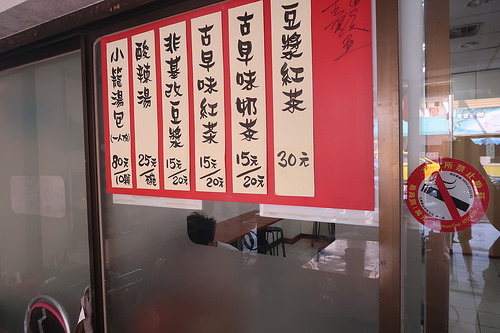 豆漿紅茶 30元
古早味奶茶 15元/20元
古早味紅茶 15元/20元
非基改豆漿 15元/20元
酸辣湯 25元/碗
小籠湯包(一人份) 80元/10顆
所禁止吸菸